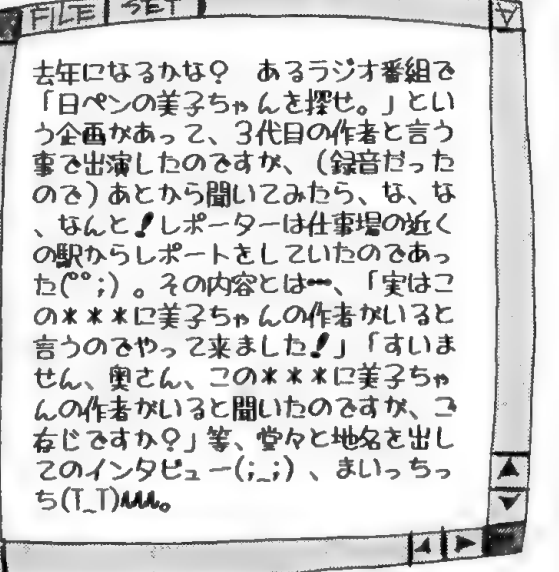 FILE SET
去年になるかな？　あるラジオ番組で
「日ペンの美子ちゃんを探せ。」とい
う企画があって、3代目の作者と言う
事で出演したのですが、（録音だった
ので）あとから聞いてみたら、な、な
、なんと！レポーターは仕事場の近く
の駅からレポートをしていたのであっ
た(°°;)。その内容とは…、「実はこ
の＊＊＊に美子ちゃんの作者がいると
言うのでやって来ました！」「すいま
せん、奥さん、この＊＊＊に美子ちゃ
んの作者がいると聞いたのですが、ご
存じですか？」等、堂々と地名を出し
てのインタビュー(;_;)、まいっちっ
ち(T_T)